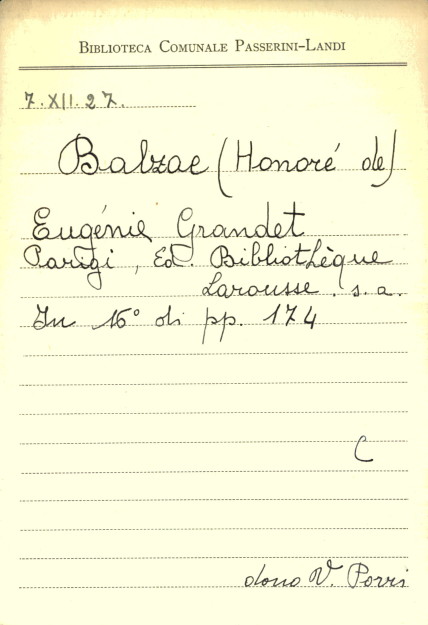 BIBLIOTECA COMUNALE PASSERINI-LANDI
7.XII.27.
Balzac (Honoré de)
Eugénie Grandet
Parigi, Ed. Bibliothèque
Larousse. s.a.
In 16° di pp. 174
C
dono V. Porri